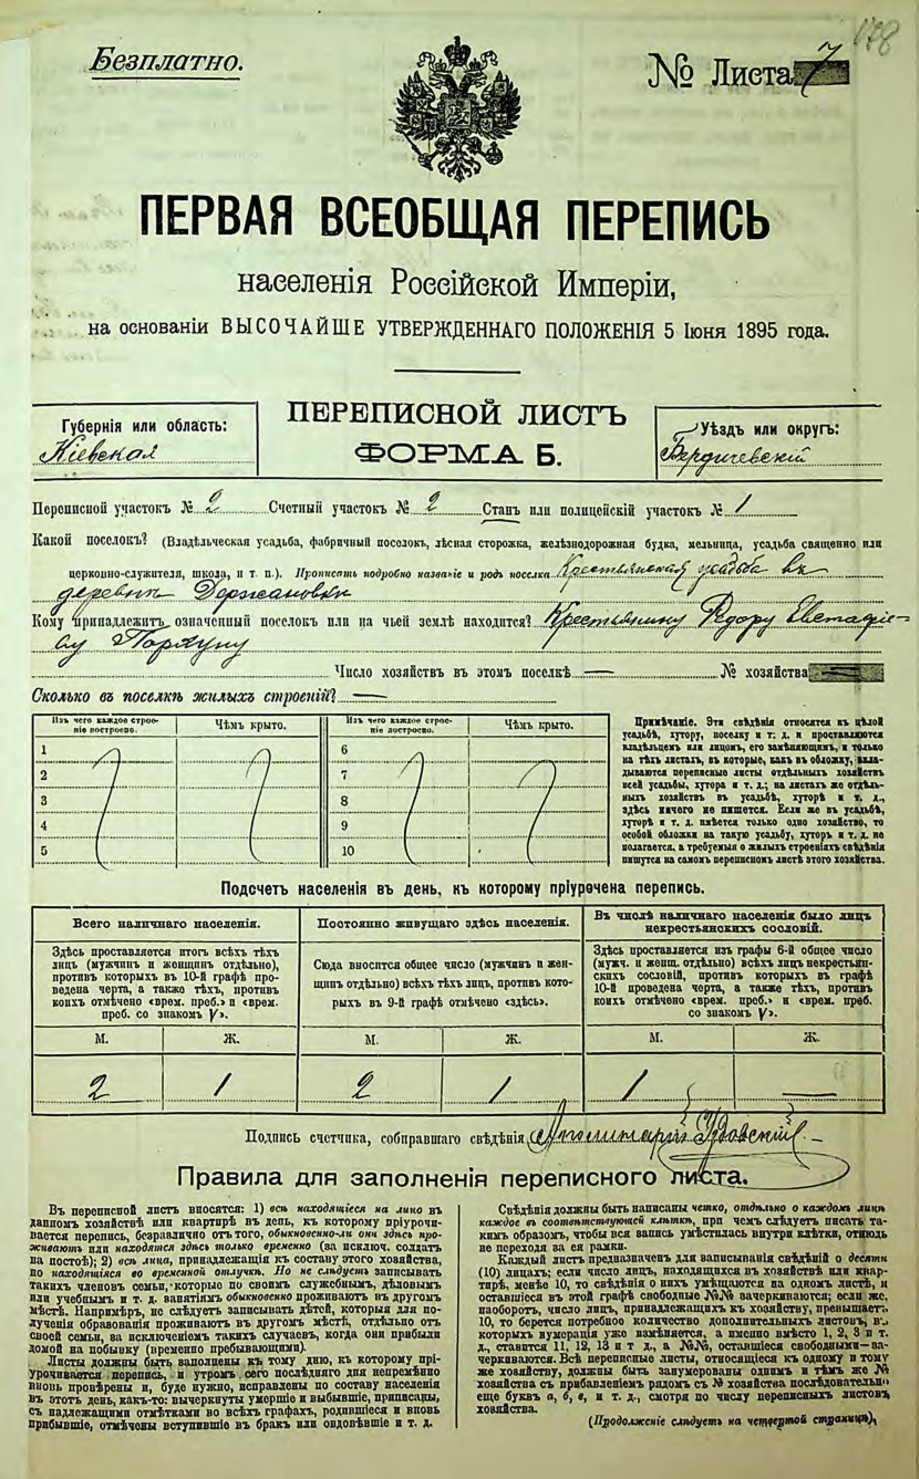 178
Безплатно.
№ Листа 7
ПЕРВАЯ ВСЕОБЩАЯ ПЕРЕПИСЬ
населенія Россійской Имперіи,
на основаніи ВЫСОЧАЙШЕ УТВЕРЖДЕННАГО ПОЛОЖЕНІЯ 5 Іюня 1895 года.
Губернія или область:
Кіевская
ПЕРЕПИСНОЙ ЛИСТЪ
ФОРМА Б.
Уѣздъ или округъ:
Бердичевскій
Переписной участокъ № 2 Счетный участокъ № 2 Станъ или полицейскій участокъ № 1
Какой поселокъ? (Владѣльческая усадьба, фабричный поселокъ, лѣсная сторожка, желѣзнодорожная будка, мельница, усадьба священно или
церковно-служителя, школа, и т. п.). Прописать подробно названіе и родъ поселка Крестьянская усадьба въ
деревнѣ Держановки
Кому принадлежитъ означенный поселокъ или на чьей землѣ находится? Крестьянину Федору Евстафіе-
ву
Число хозяйствъ въ этомъ поселкѣ — № хозяйства
Сколько въ поселкѣ жилыхъ строеній? —
Изъ чего каждое строе-
ніе построено.
Чѣмъ крыто.
Изъ чего каждое строе-
ніе построено.
Чѣмъ крыто.
1
2
3
4
5
6
7
8
9
10
Примѣчаніе. Эти свѣдѣнія относятся къ цѣлой
усадьбѣ, хутору, поселку и т: д. и проставляются
владѣльцемъ или лицомъ, его замѣняющимъ, и только
на тѣхъ листахъ, въ которые, какъ въ обложку, вкла-
дываются переписные листы отдѣльныхъ хозяйствъ
всей усадьбы, хутора и т. д.; на листахъ же отдѣль-
ныхъ хозяйствъ въ усадьбѣ, хуторѣ и т. д.,
здѣсь ничего не пишется. Если же въ усадьбѣ,
хуторѣ и т. д. имѣется только одно хозяйство, то
особой обложки на такую усадьбу, хуторъ и т. д. не
полагается, а требуемыя о жилыхъ строеніяхъ свѣдѣнія
пишутся на самомъ переписномъ листѣ этого хозяйства.
Подсчетъ населенія въ день, къ которому пріурочена перепись.
Всего наличнаго населенія.
Постоянно живущаго здѣсь населенія.
Въ числѣ наличнаго населенія было лицъ
некрестьянскихъ сословій.
Здѣсь проставляется итогъ всѣхъ тѣхъ
лицъ (мужчинъ и женщинъ отдѣльно),
противъ которыхъ въ 10-й графѣ про-
ведена черта, а также тѣхъ, противъ
коихъ отмѣчено «врем. преб.» и «врем.
преб. со знакомъ V».
Сюда вносится общее число (мужчинъ и жен-
щинъ отдѣльно) всѣхъ тѣхъ лицъ, противъ кото-
рыхъ въ 9-й графѣ отмѣчено «здѣсь».
Здѣсь проставляется изъ графы 6-й общее число
(мужч. и женщ. отдѣльно) всѣхъ лицъ некрестьян-
скихъ сословій, противъ которыхъ въ графѣ
10-й проведена черта, а также тѣхъ, противъ
коихъ отмѣчено «врем. преб.» и «врем. преб.
со знакомъ V».
М. Ж. М. Ж. М. Ж.
2 1 2 1 1 —
Подпись счетчика, собиравшаго свѣдѣнія
Правила для заполненія переписного листа.
Въ переписной листъ вносятся: 1) всѣ находящіеся на лицо въ
данномъ хозяйствѣ или квартирѣ въ день, къ которому пріурочи-
вается перепись, безразлично отъ того, обыкновенно-ли они здѣсь про-
живаютъ или находятся здѣсь только временно (за исключ. солдатъ
на постоѣ); 2) всѣ лица, принадлежащія къ составу этого хозяйства,
но находящіяся во временной отлучкѣ. Но не слѣдуетъ записывать
такихъ членовъ семьи, которые по своимъ служебнымъ, дѣловымъ
или учебнымъ и т. д. занятіямъ обыкновенно проживаютъ въ другомъ
мѣстѣ. Напримѣръ, не слѣдуетъ записывать дѣтей, которыя для по-
лученія образованія проживаютъ въ другомъ мѣстѣ, отдѣльно отъ
своей семьи, за исключеніемъ такихъ случаевъ, когда они прибыли
домой на побывку (временно пребывающими).
Листы должны быть заполнены къ тому дню, къ которому прі-
урочивается перепись, и утромъ сего послѣдняго дня непремѣнно
вновь провѣрены и, буде нужно, исправлены по составу населенія
въ этотъ день, какъ-то: вычеркнуты умершіе и выбывшіе, приписаны,
съ надлежащими отмѣтками во всѣхъ графахъ, родившіеся и вновь
прибывшіе, отмѣчены вступившіе въ бракъ или овдовѣвшіе и т. д.
Свѣдѣнія должны быть написаны четко, отдѣльно о каждомъ лицѣ
каждое въ соотвѣтствующей клѣткѣ, при чемъ слѣдуетъ писать та-
кимъ образомъ, чтобы вся запись умѣстилась внутри клѣтки, отнюдь
не переходя за ея рамки.
Каждый листъ предназначенъ для записыванія свѣдѣній о десяти
(10) лицахъ; если число лицъ, находящихся въ хозяйствѣ или квар-
тирѣ, менѣе 10, то свѣдѣнія о нихъ умѣщаются на одномъ листѣ, и
оставшіеся въ этой графѣ свободные №№ зачеркиваются; если же,
наоборотъ, число лицъ, принадлежащихъ къ хозяйству, превышаетъ
10, то берется потребное количество дополнительныхъ листовъ, въ
которыхъ нумерація уже измѣняется, а именно вмѣсто 1, 2, 3 и т.
д., ставится 11, 12, 13 и т д., а №№, оставшіеся свободными—за-
черкиваются. Всѣ переписные листы, относящіеся къ одному и тому
же хозяйству, должны быть занумерованы однимъ и тѣмъ же №
хозяйства съ прибавленіемъ рядомъ съ № хозяйства послѣдовательно
еще буквъ а, б, в, и т. д., смотря по числу переписныхъ листовъ
хозяйства.
(Продолженіе слѣдуетъ на четвертой страницѣ).